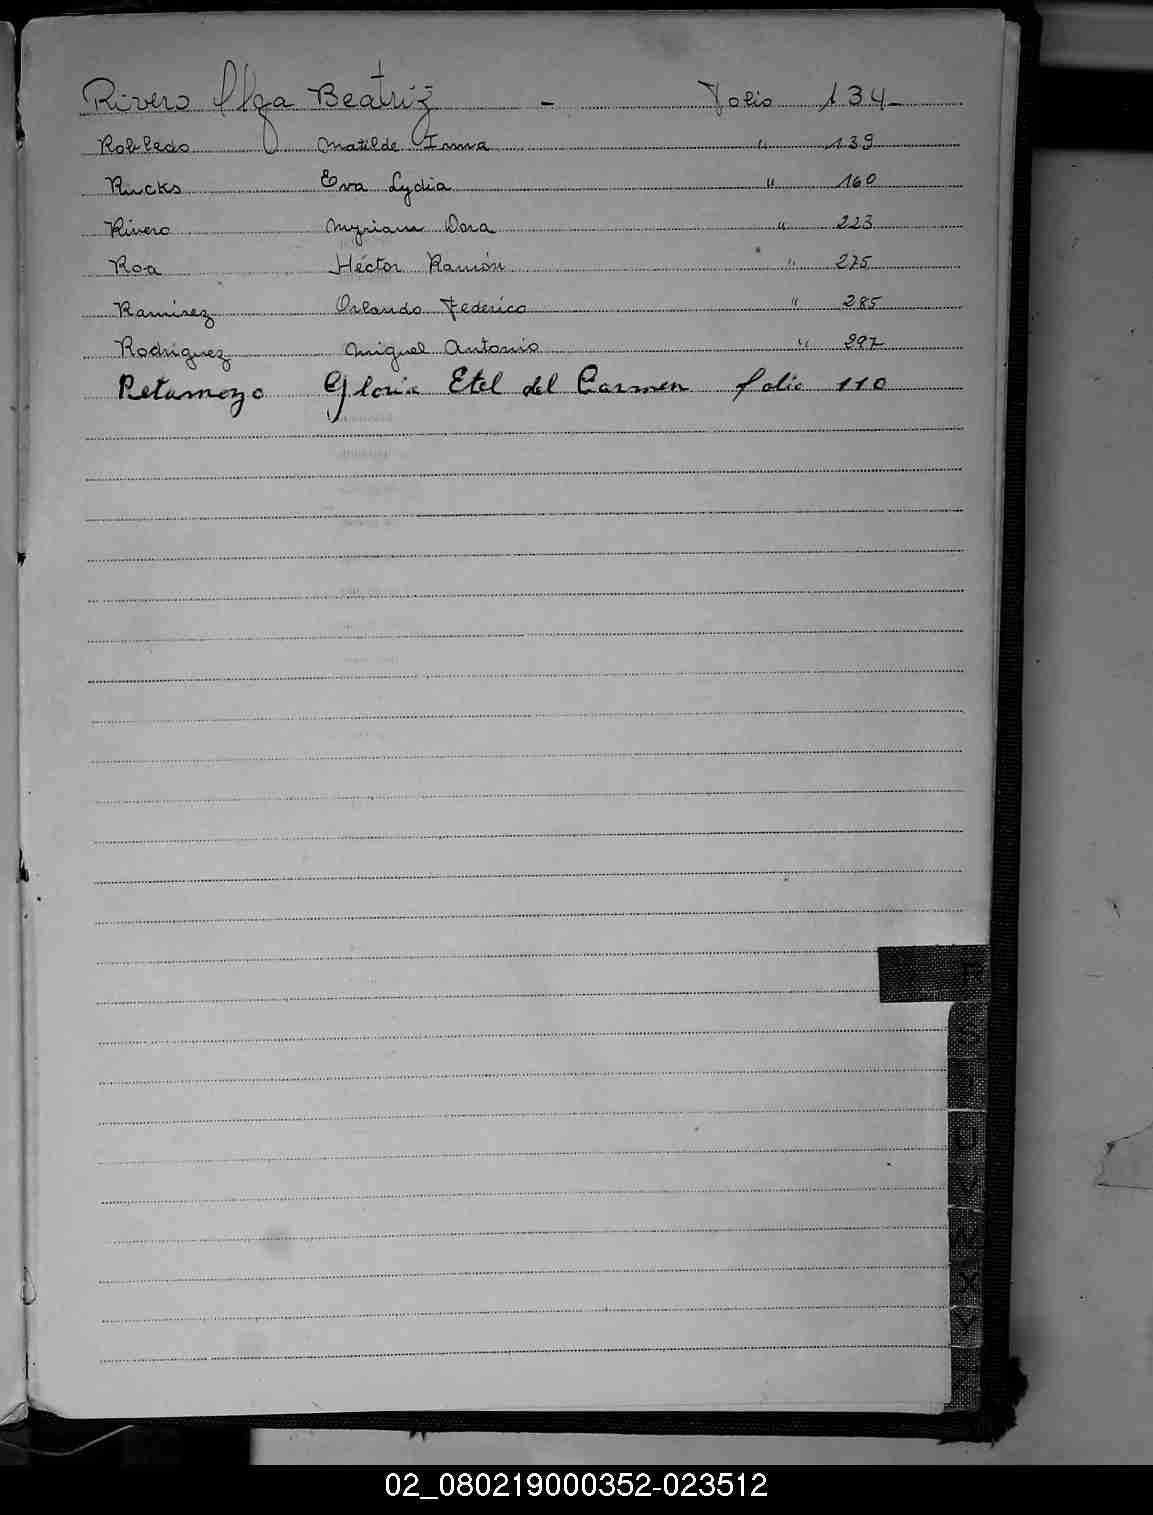 Rivero Olga Beatriz - Folio 134-
Robledo Matilde Irma " 139
Rucks Eva Lydia " 160
Rivero Myriam Dora " 223
Roa Héctor Ramón " 275
Ramirez Orlando Federico " 285
Rodriguez Miguel Antonio " 297
Retamozo Gloria Etel del Carmen folio 110
R
S
U
V
X
Y
02_080219000352-023512